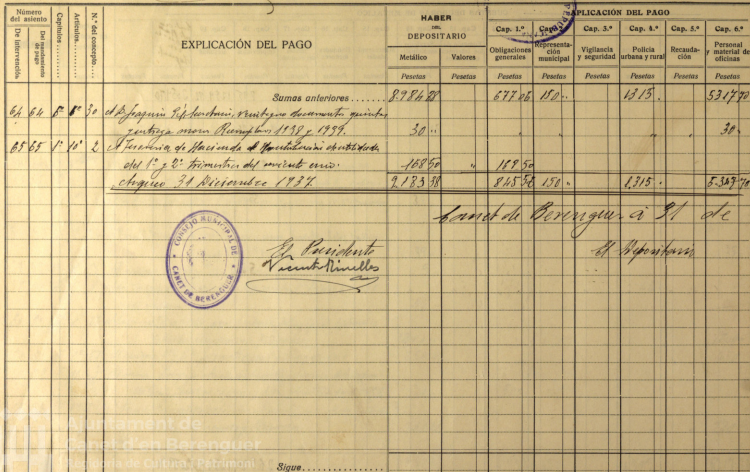 Número del asiento
De intervención
Del mandamiento de pago
Capítulos
Artículos
N.º del concepto
EXPLICACIÓN DEL PAGO
HABER
DEL
DEPOSITARIO
APLICACIÓN DEL PAGO
Metálico
Valores
Cap. 1.º
Obligaciones generales
Representación municipal
Cap. 3.º
Vigilancia y seguridad
Cap. 4.º
Policía urbana y rural
Cap. 5.º
Recaudación
Cap. 6.º
Personal y material de oficinas
Pesetas Pesetas Pesetas Pesetas Pesetas Pesetas Pesetas Pesetas
Sumas anteriores........ 8.984 88 677 06 150 1.315 5.317 70
64 64 6º 30 A D. Joaquin documentos quintas
y entrega mozos Reemplazos 1938 y 1939. 30 30
65 65 1º 10º 2 A Tesorería de Hacienda
del 1º y 2º trimestres del corriente año. 168 50 168 50
Arqueo 31 Diciembre 1937. 9.183 38 845 56 150 1.315 5.347 70
Canet de Berenguer á 31 de
El Presidente
El Depositario
Vicente Rivelles
CONSEJO MUNICIPAL DE
CANET DE BERENGUER
Ajuntament de
Canet d'en Berenguer
Regidoria de Cultura i Patrimoni
Sigue................